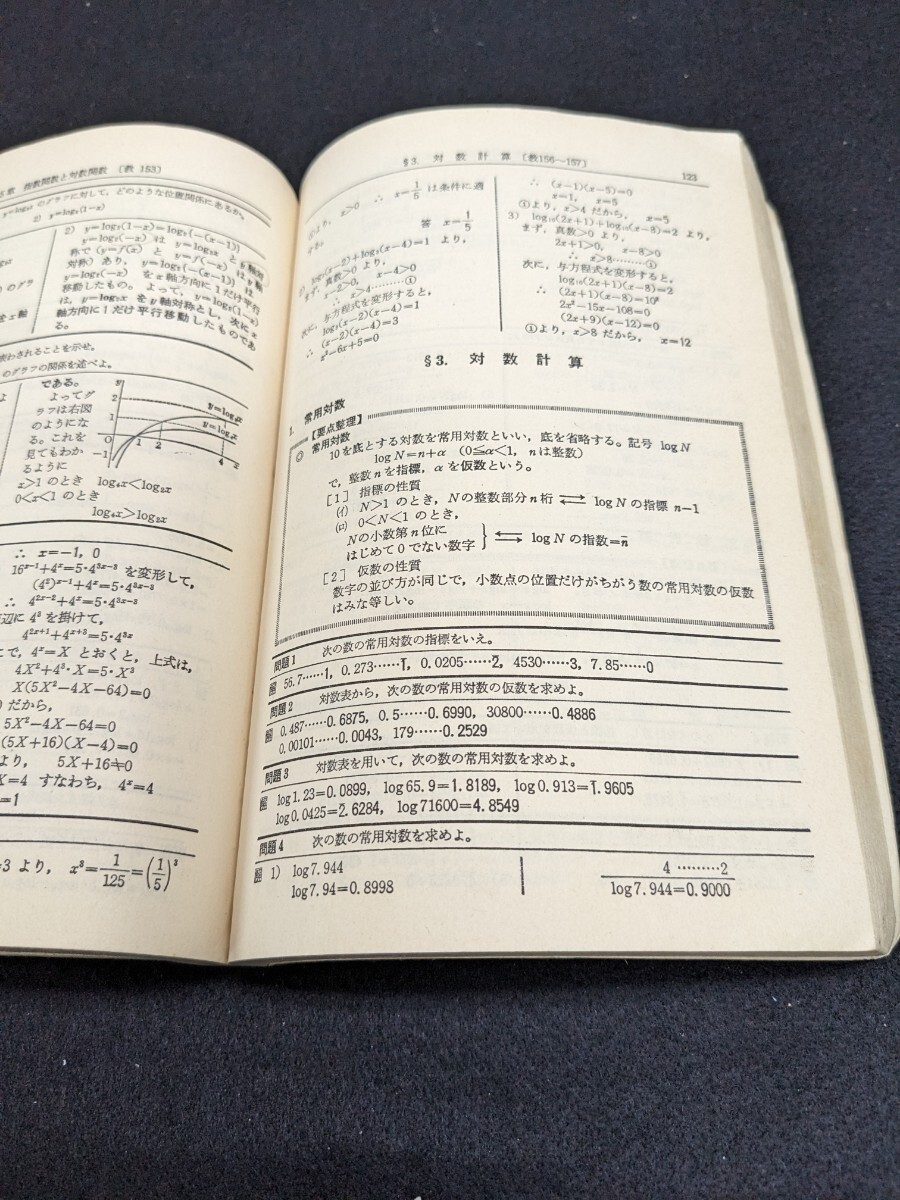 5章 指数関数と対数関数 〔教 153〕
のグラフに対して，どのような位置関係にあるか。
2) y=log₂(1-x)
2) y=log₂(1-x)=log₂{-(x-1)}
y=log₂(-x) は y=log₂x と y 軸対
称で (y=f(x) と y=f(-x) は y 軸
対称) あり，y=log₂{-(x-1)} は
y=log₂(-x) を x 軸方向に1だけ平行
移動したもの。 よって，y=log₂(1-x)
は，y=log₂x を y 軸対称とし，次に x
軸方向に1だけ平行移動したものであ
る。
表わされることを示せ。
のグラフの関係を述べよ。
である。
よってグ
ラフは右図
のようにな
る。これを
見てもわか
るように
x>1 のとき log₄x<log₂x
0<x<1 のとき
log₄x>log₂x
y
2
1
0
-1
1 2 4 x
∴ x=-1, 0
16ˣ⁻¹+4ˣ=5·4³ˣ⁻³ を変形して，
(4²)ˣ⁻¹+4ˣ=5·4³ˣ⁻³
∴ 4²ˣ⁻²+4ˣ=5·4³ˣ⁻³
辺に 4³ を掛けて，
4²ˣ⁺¹+4ˣ⁺³=5·4³ˣ
で，4ˣ=X とおくと，上式は，
4X²+4³·X=5·X³
X(5X²-4X-64)=0
だから，
5X²-4X-64=0
(5X+16)(X-4)=0
より， 5X+16≠0
X=4 すなわち， 4ˣ=4
=1
3 より， x³=1/125=(1/5)³
§3. 対 数 計 算 〔教156～157〕
123
より， x>0 ∴ x=1/5 は条件に適
する。
答 x=1/5
log₃(x-2)+log₃(x-4)=1 より，
まず，真数>0 より，
x-2>0, x-4>0
∴ x>4………①
次に，与方程式を変形すると，
log₃(x-2)(x-4)=1
∴ (x-2)(x-4)=3
x²-6x+5=0
∴ (x-1)(x-5)=0
x=1, x=5
①より，x>4 だから， x=5
3) log₁₀(2x+1)+log₁₀(x-8)=2 より，
まず，真数>0 より，
2x+1>0, x-8>0
∴ x>8………①
次に，与方程式を変形すると，
log₁₀(2x+1)(x-8)=2
∴ (2x+1)(x-8)=10²
2x²-15x-108=0
(2x+9)(x-12)=0
①より，x>8 だから， x=12
§3. 対 数 計 算
1. 常用対数
【要点整理】
◎ 常用対数
10を底とする対数を常用対数といい，底を省略する。記号 log N
log N=n+α (0≦α<1, n は整数)
で，整数 n を指標，α を仮数という。
［1］ 指標の性質
(イ) N>1 のとき，Nの整数部分 n 桁 ⇄ log N の指標 n-1
(ロ) 0<N<1 のとき，
Nの小数第 n 位に
はじめて0でない数字 } ⇄ log N の指数=n̄
［2］ 仮数の性質
数字の並び方が同じで，小数点の位置だけがちがう数の常用対数の仮数
はみな等しい。
問題1 次の数の常用対数の指標をいえ。
解 56.7……1, 0.273……1̄, 0.0205……2̄, 4530……3, 7.85……0
問題2 対数表から，次の数の常用対数の仮数を求めよ。
解 0.487……0.6875, 0.5……0.6990, 30800……0.4886
0.00101……0.0043, 179……0.2529
問題3 対数表を用いて，次の数の常用対数を求めよ。
解 log1.23=0.0899, log65.9=1.8189, log0.913=1̄.9605
log0.0425=2̄.6284, log71600=4.8549
問題4 次の数の常用対数を求めよ。
解 1) log7.944
log7.94=0.8998
4 ………2
log7.944=0.9000